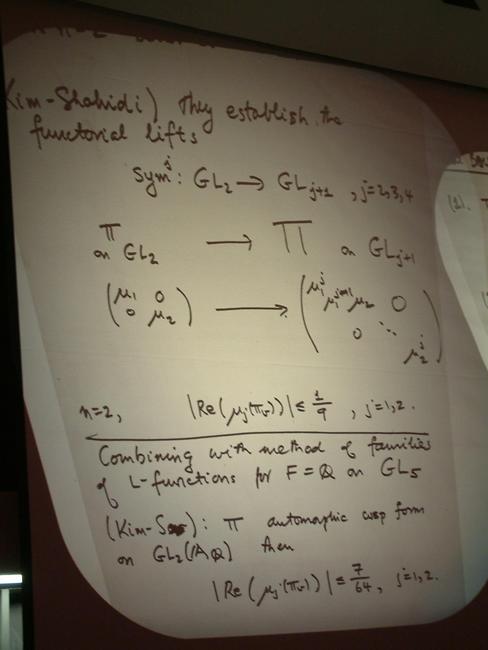 (Kim-Shahidi) They establish the
functorial lifts
sym^j : GL₂ → GL_{j+1} , j=2,3,4
π on GL₂ → Π on GL_{j+1}
(μ₁ 0 0 μ₂) → (μ₁^j μ₁^{j-1}μ₂ 0 0 ⋱ μ₂^j)
n=2, |Re(μ_j(π_v))| ≤ 1/9 , j=1,2.
Combining with method of families
of L-functions for F = ℚ on GL₅
(Kim-Sar): π automorphic cusp form
on GL₂(𝔸_ℚ) then
|Re(μ_j(π_v))| ≤ 7/64, j=1,2.
(1).